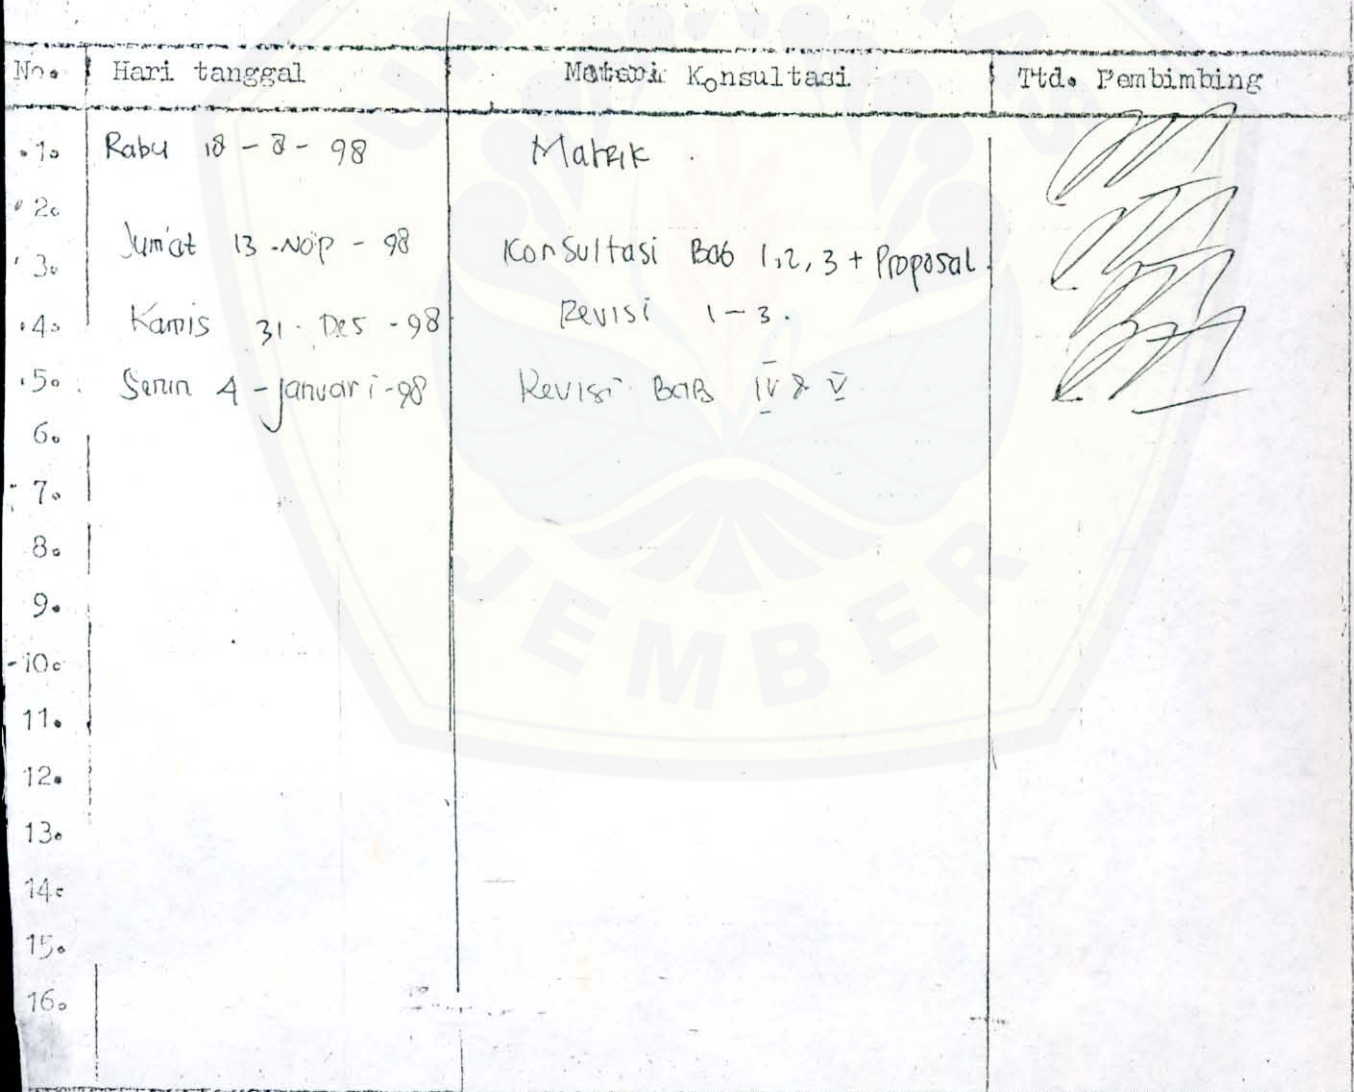 No. Hari tanggal Materi Konsultasi Ttd. Pembimbing
1. Rabu 18 - 8 - 98 Matrik .
2.
Jum'at 13 - Nop - 98 Konsultasi Bab 1,2,3 + Proposal.
3.
4. Kamis 31 - Des - 98 Revisi 1 - 3.
5. Senin 4 - Januari - 98 Revisi BAB IV & V
6.
7.
8.
9.
10.
11.
12.
13.
14.
15.
16.
JEMBER